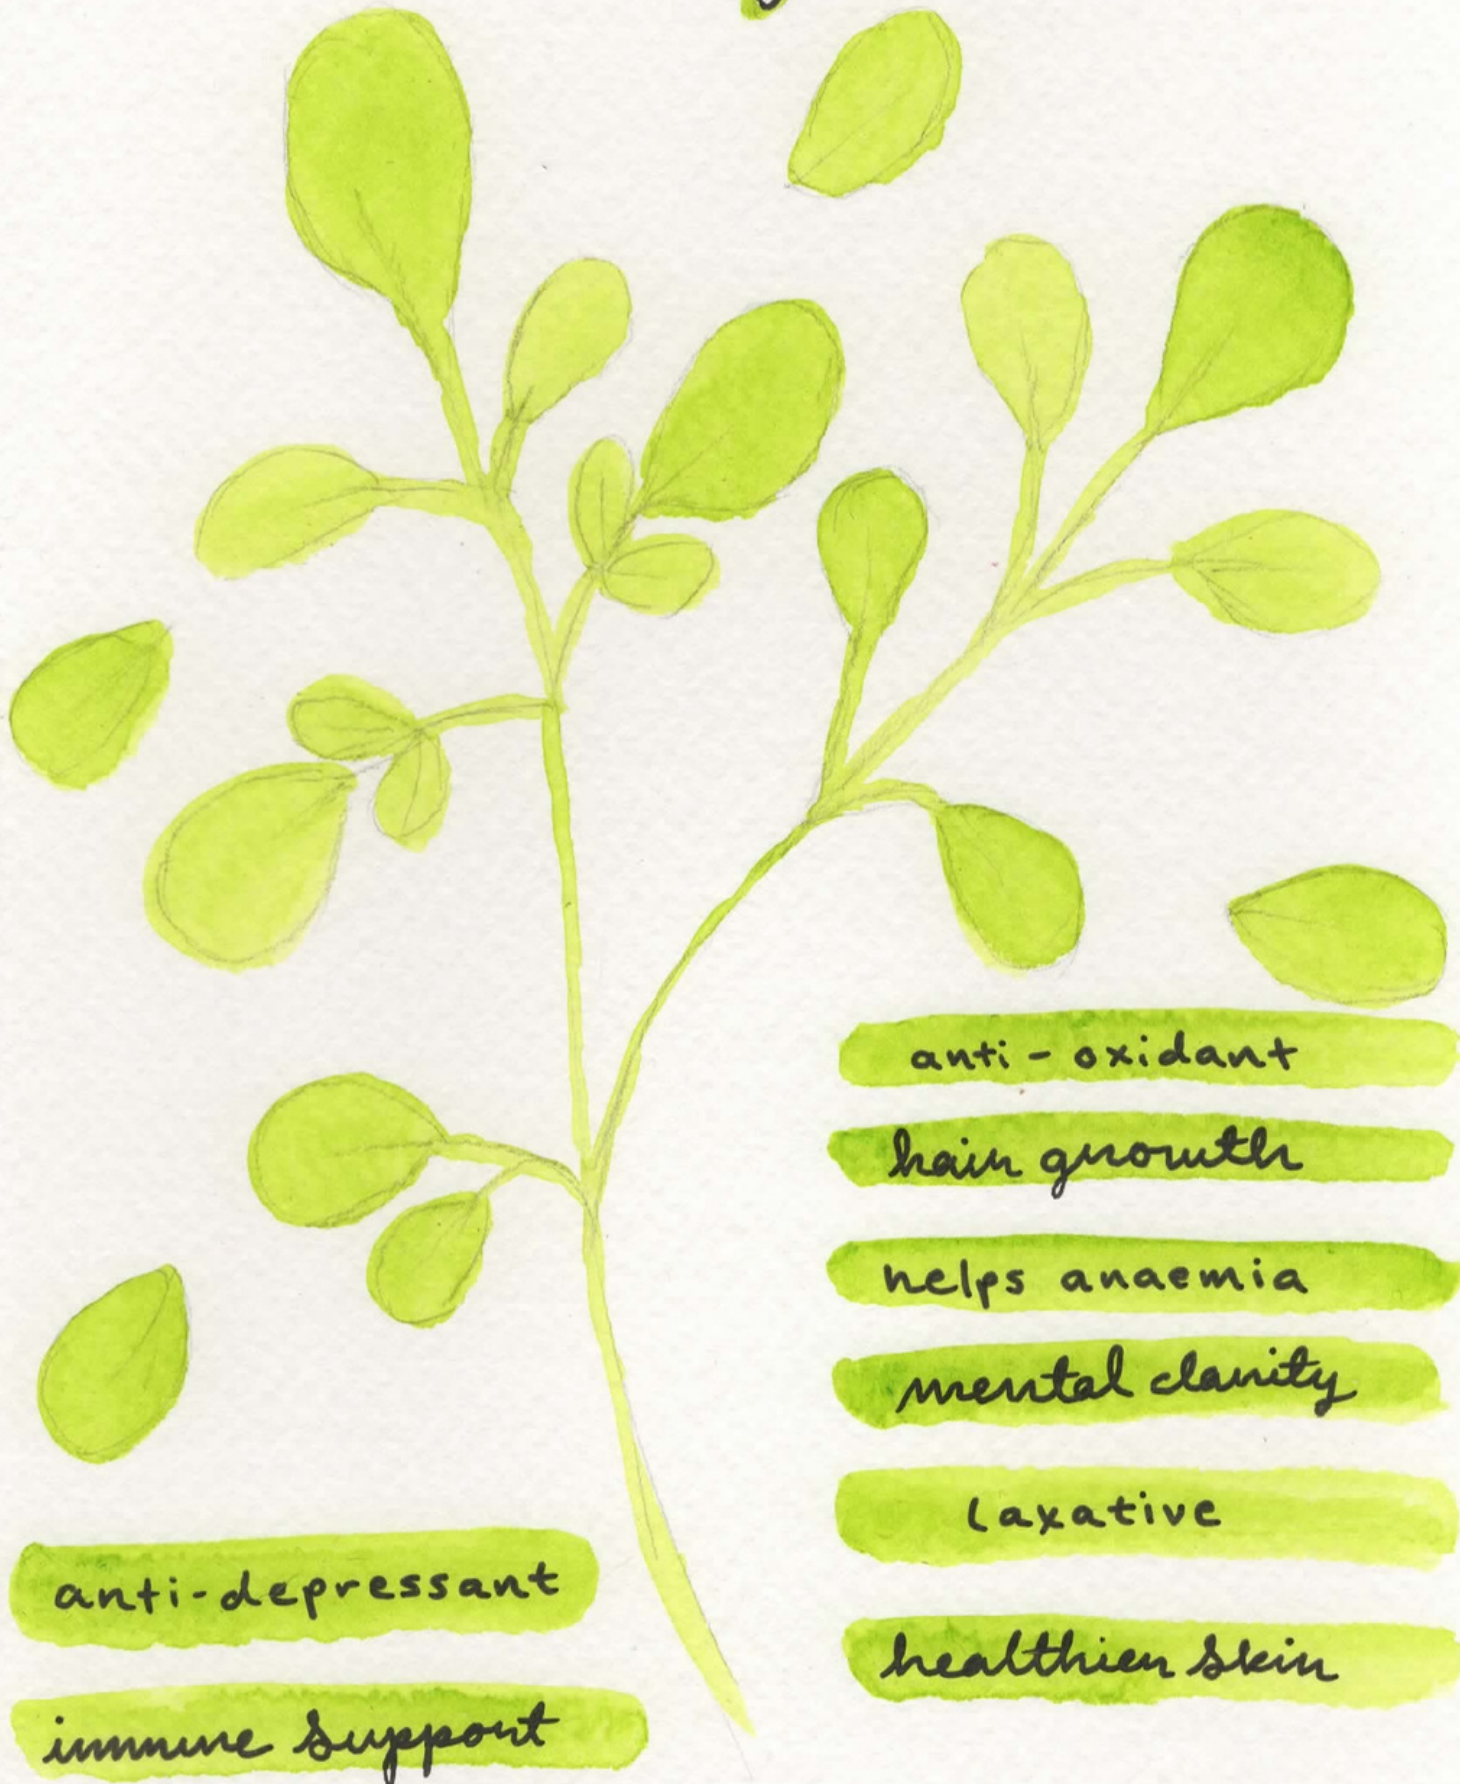 anti - oxidant
hair growth
helps anaemia
mental clarity
laxative
healthier skin
anti-depressant
immune support